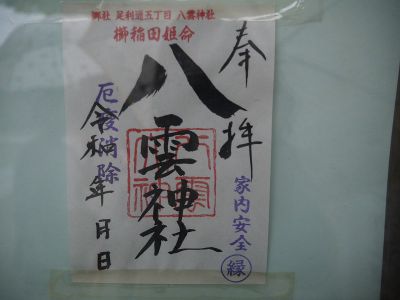 御社 足利通五丁目 八雲神社
櫛稲田姫命
奉拝
八雲神社
八雲神社
厄疫消除
令和 年 月 日
家内安全
縁